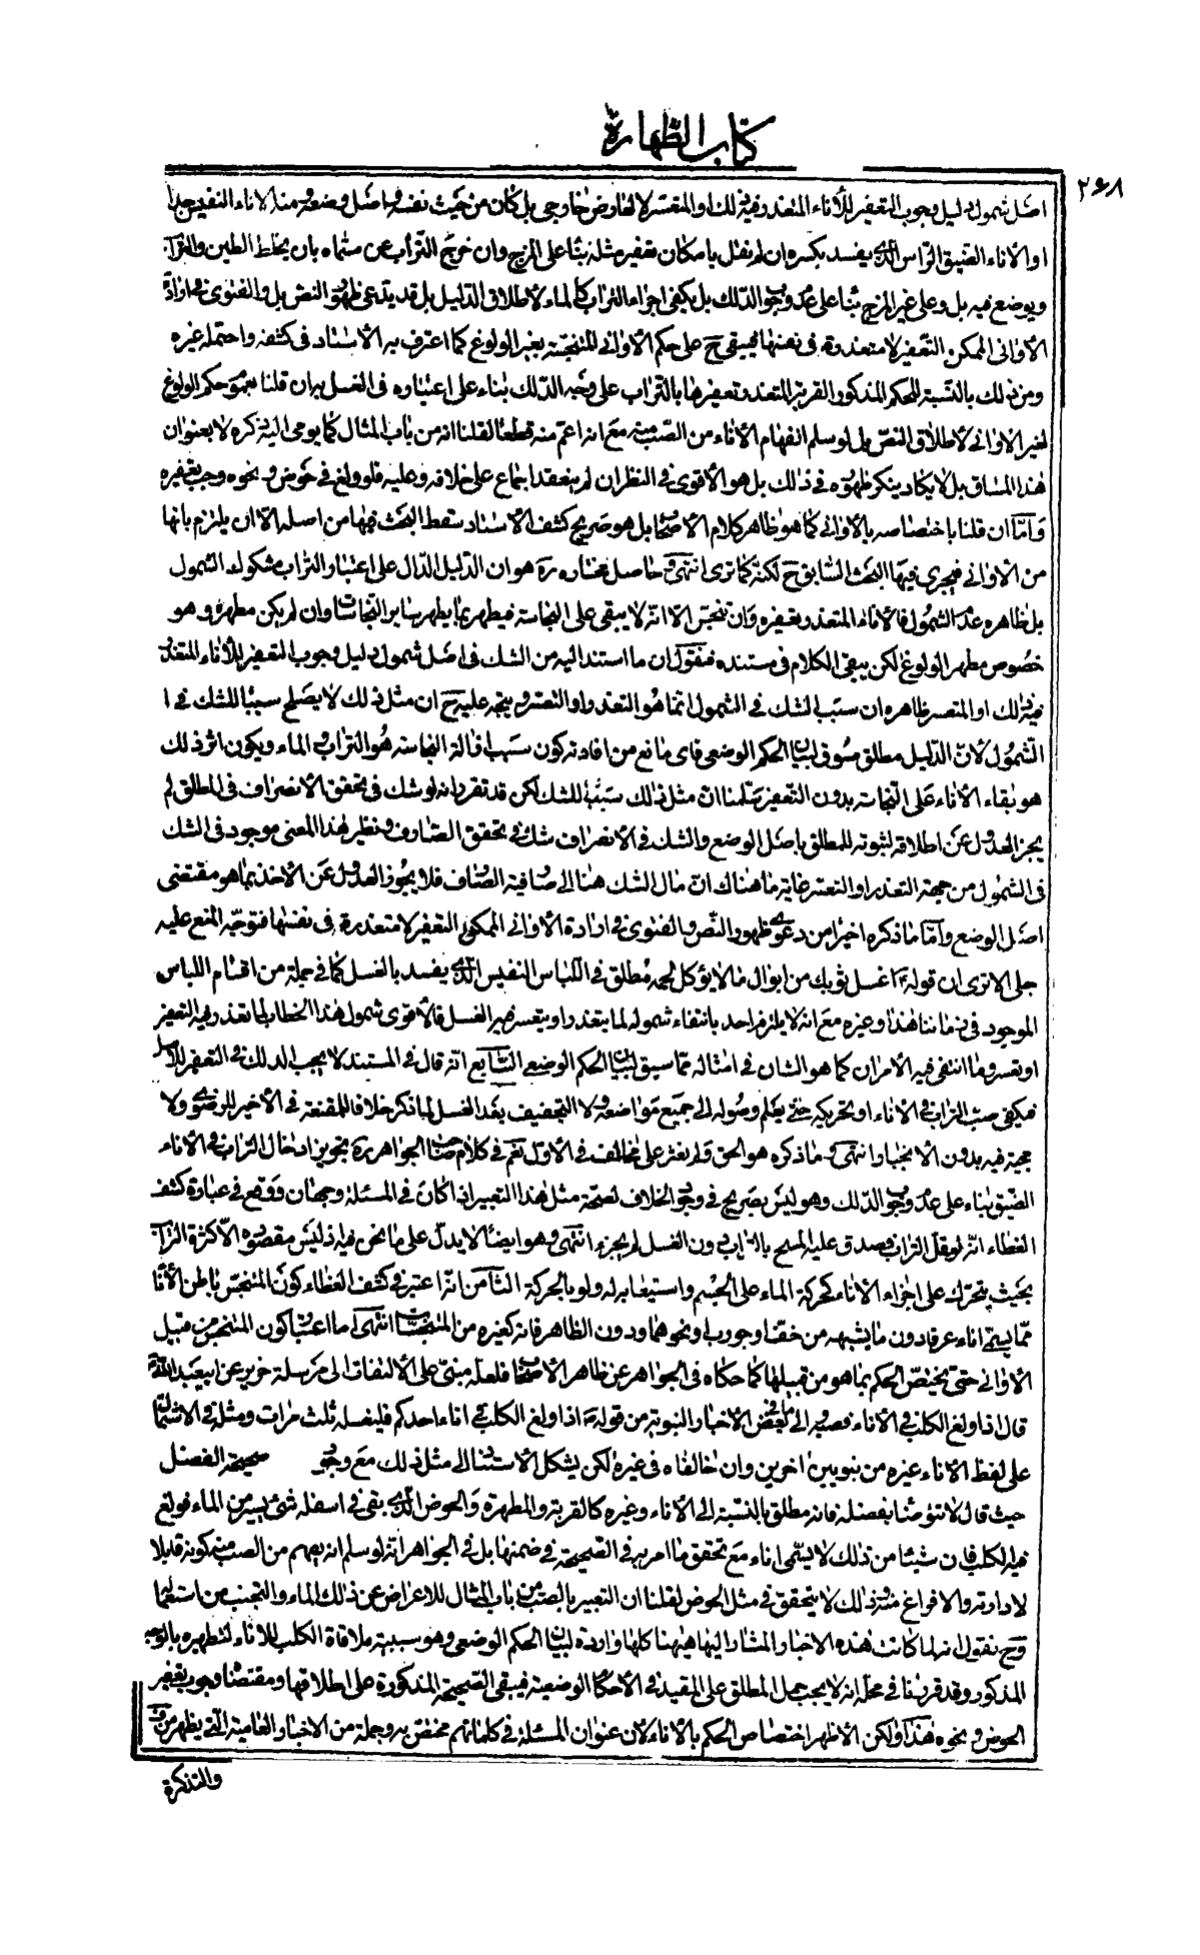 كتاب الطهارة
٢٦٨
اصل شمول دليل وجوب التعفير للأناء المتعذر فيه ذلك او المتعسر لا لعارض خارجي بل كان من حيث نفسه واصل وضعه ومنه الاناء النفيس جدا
او الاناء الضيق الراس الذي يفسد بكسره ان لم نقل بامكان تعفير مثله بناء على المزج وان خرج التراب عن مسماه بان يخلط الطين والتراب
ويوضع فيه بل وعلى غير المزج بناء على عدم وجوب الدلك بل يكفي اجراء التراب كالماء لاطلاق الدليل بل قد يدعى ظهور النص بل والفتوى في ارادة
الاواني الممكن التعفير لا متعذرة في نفسها فيبقى ح على حكم الأواني المتنجسة بغير الولوغ كما اعترف به الاستاد في كشفه واحتمله غيره
ومن ذلك بالنسبة للحكم المذكور القربة المتعذر تعفيرها بالتراب على وجه الدلك بناء على اعتباره في الغسل به ان قلنا بعموم حكم الولوغ
لغير الاواني لأطلاق النص بل لو سلم انفهام الأناء من الصب منه مع انه اعم منه قطعا لقلنا انه من باب المثال كما يومى اليه ذكره لا بعنوان
هذا المساق بل لا يكاد ينكر ظهوره في ذلك بل هو الأقوى في النظر ان لم ينعقد اجماع على خلافه وعليه فلو ولغ في حوض ونحوه وجب تعفيره
وأما ان قلنا باختصاصه بالأواني كما هو ظاهر كلام الأصحاب بل هو صريح كشف الأستاد سقط البحث فيها من اصله الا ان يلتزم بانها
من الاواني فيجري فيها البحث السابق ح لكنه كما ترى انتهى وحاصل مختاره ره هو ان الدليل الدال على اعتبار التراب مشكوك الشمول
بل ظاهره عدم الشمول فالأناء المتعذر تعفيره وان تنجس الا انه لا يبقى على النجاسة فيطهر بما يطهر ساير النجاسات وان لم يكن مطهره هو
خصوص مطهر الولوغ لكن يبقى الكلام في مستنده فنقول ان ما استند اليه من الشك في اصل شمول دليل وجوب التعفير للأناء المتعذر
فيه ذلك او المتعسر ظاهره ان سبب الشك في الشمول انما هو التعذر او التعسر ويتجه عليه ح ان مثل ذلك لا يصلح سببا للشك في
الشمول لأن الدليل مطلق مسوق لبيان الحكم الوضعي فاى مانع من افادته كون سبب ازالة النجاسة هو التراب والماء ويكون اثر ذلك
هو بقاء الأناء على النجاسة بدون التعفير سلمنا ان مثل ذلك سبب للشك لكن قد تقرر انه لو شك في تحقق الأنصراف في المطلق لم
يجز العدول عن اطلاقه لثبوته للمطلق باصل الوضع والشك في الانصراف شك في تحقق الصارف ونظير هذا المعنى موجود في الشك
في الشمول من جهة التعذر او التعسر غاية ما هناك ان مال الشك هنا الى صارفية الصارف فلا يجوز العدول عن الأخذ بما هو مقتضى
اصل الوضع وأما ما ذكره اخيرا من دعوى ظهور النص والفتوى في ارادة الأواني الممكن التعفير لا متعذرة في نفسها فتوجه المنع عليه
جلى الا ترى ان قوله ع اغسل ثوبك من ابوال ما لا يؤكل لحمه مطلق في اللباس النفيس الذي يفسد بالغسل كما في جملة من اقسام اللباس
الموجود في زماننا هذا وغيره مع انه لا يلتزم احد بانتفاء شموله لما يتعذر او يتعسر فيه الغسل فالأقوى شمول هذا الخطاب لما تعذر فيه التعفير
او تعسر وما انتفى فيه الأمران كما هو الشان في امثاله مما سيق لبيان الحكم الوضعي السابع انه قال في المستند لا يجب الدلك في التعفير للأصل
فيكفى صب التراب في الأناء او تحريكه حتى يعلم وصوله الى جميع مواضعه ولا التجفيف بعد الغسل لما ذكر خلافا للمقنعة في الأخير للرضوي ولا
حجية فيه بدون الأنجبار انتهى وما ذكره هو الحق ولم نعثر على مخالف في الأول نعم في كلام صاحب الجواهر ره تجويز ادخال التراب في الأناء
الضيق بناء على عدم وجوب الدلك وهو ليس بصريح في وجود الخلاف لصحة مثل هذا التعبير اذا كان في المسئلة وجهان ووقع في عبارة كشف
الغطاء انه لو قل التراب فصدق عليه المسح بالتراب دون الغسل لم يجزء انتهى وهو ايضا لا يدل على ما نحن فيه اذ ليس مقصوده الا كثرة التراب
بحيث يتحرك على اجزاء الأناء كحركة الماء على الجسم واستيعابه له ولو بالحركة الثامن انه اعتبر في كشف الغطاء كون المتنجس باطن الأناء
مما يسمى اناء عرفا دون ما يشبهه من خف او جورب او نحوهما ودون الظاهر فانه كغيره من المتنجسات انتهى اما اعتبار كون المتنجس من قبيل
الأواني حتى يختص الحكم بما هو من قبيلها كما حكاه في الجواهر عن ظاهر الأصحاب فلعله مبنى على الألتفات الى مرسلة حريز عن ابيعبد الله ع
قال اذا ولغ الكلب في الأناء فصبه والى ما في بعض الأخبار النبوية من قوله ص اذا ولغ الكلب في اناء احدكم فليغسله ثلث مرات ومثله في الاشتمال
على لفظ الاناء غيره من نبويين اخرين وان خالفاه في غيره لكن يشكل الأستناد الى مثل ذلك مع وجود صحيحة الفضل
حيث قال لا تتوضا بفضله فانه مطلق بالنسبة الى الأناء وغيره كالقربة والمطهرة والحوض الذي بقى في اسفله شئ يسير من الماء فولغ
فيه الكلب فان شيئا من ذلك لا يسمى اناء مع تحقق ما امر به في الصحيحة في ضمنها بل في الجواهر انه لو سلم انه يفهم من الصب منه كونه قابلا
لادارته والافراغ منه وذلك لا يتحقق في مثل الحوض لقلنا ان التعبير بالصب من باب المثال للاعراض عن ذلك الماء والتجنب من استعماله
وح نقول انه لما كانت هذه الاخبار المشار اليها هيهنا كلها واردة لبيان الحكم الوضعي وهو سببية ملاقاة الكلب للاناء لتطهيره بالوجه
المذكور وقد قررنا في محله انه لا يجب حمل المطلق على المقيد في الأحكام الوضعية فيبقى الصحيحة المذكورة على اطلاقها ومقتضاها وجوب تعفير
الحوض ونحوه هذا ولكن الأظهر اختصاص الحكم بالأناء لأن عنوان المسئلة في كلماتهم مختص به وجملة من الاخبار العامية التي يظهر من
والتذكرة